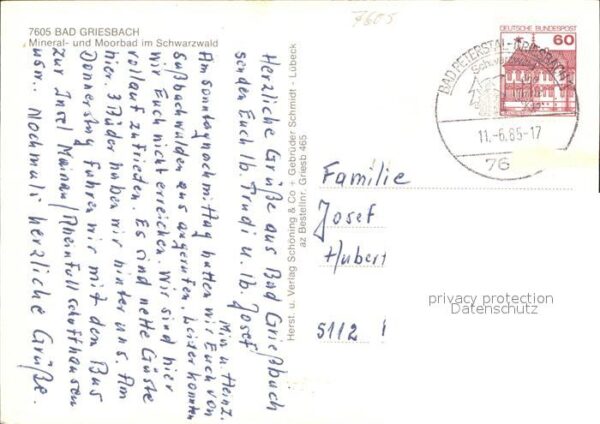 7605
7605 BAD GRIESBACH
Mineral- und Moorbad im Schwarzwald
Herzliche Grüße aus Bad Grießbach
senden Euch lb. Trudi u. lb. Josef
Mia u. Heinz.
Am Sonntagnachmittag hatten wir Euch von
Saßbachwalden aus angerufen. Leider konnten
wir Euch nicht erreichen. Wir sind hier
vollauf zufrieden. Es sind nette Gäste
hier. 3 Bäder haben wir hinter uns. Am
Donnerstag fahren wir mit dem Bus
zur Insel Mainau/Rheinfall Schaffhausen
usw. Nochmals herzliche Grüße.
Herst. u. Verlag Schöning & Co + Gebrüder Schmidt - Lübeck
az Bestellnr. Griesb 465
DEUTSCHE BUNDESPOST
60
BAD PETERSTAL-GRIESBACH
Schwarzwald
11.-6.85-17
76
Familie
Josef
Hubert
5112
privacy protection
Datenschutz